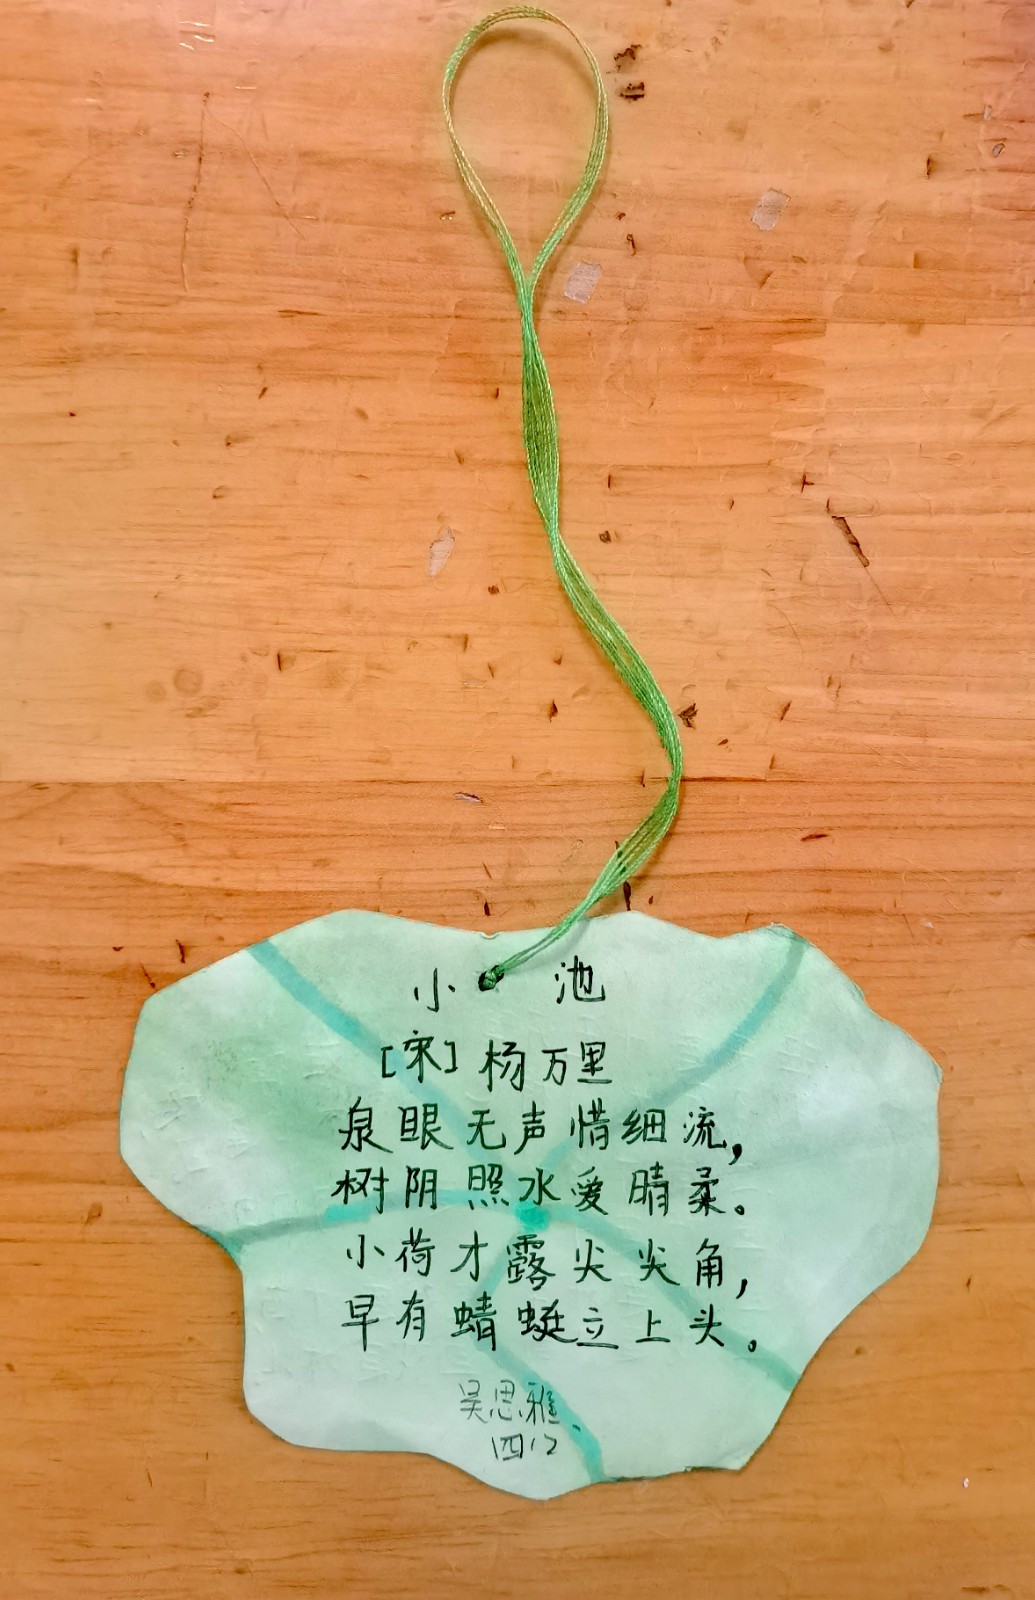 小池
[宋]杨万里
泉眼无声惜细流，
树阴照水爱晴柔。
小荷才露尖尖角，
早有蜻蜓立上头。
吴思雅
四12